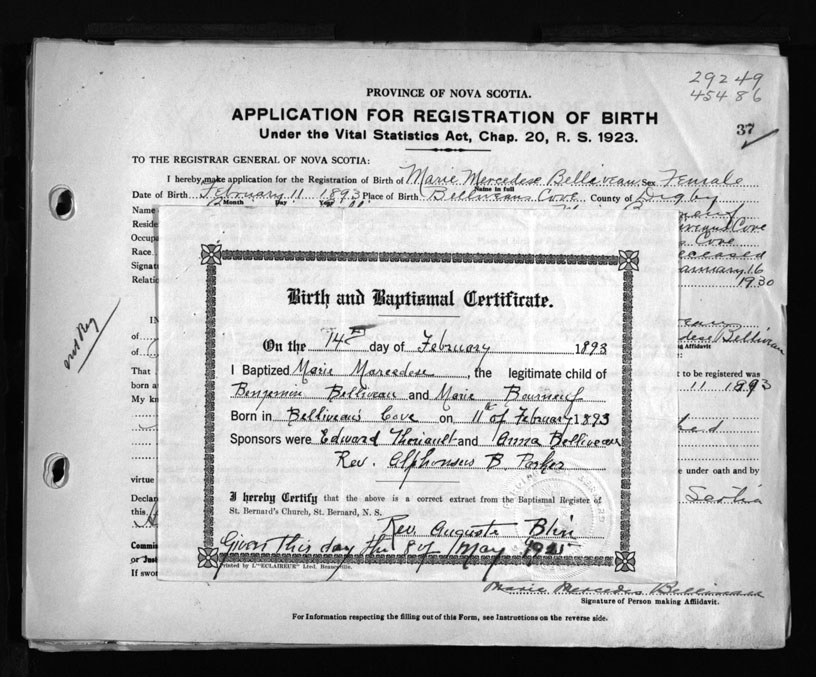 29249
45486
37
PROVINCE OF NOVA SCOTIA.
APPLICATION FOR REGISTRATION OF BIRTH
Under the Vital Statistics Act, Chap. 20, R. S. 1923.
TO THE REGISTRAR GENERAL OF NOVA SCOTIA:
I hereby make application for the Registration of Birth of Marie Mercedese Belliveau Sex Female
Name in full
Date of Birth February 11 1893 Place of Birth Belliveaus Cove County of Digby
Month Day Year
Name
Reside
Occupa Cove
Race
Signatu January 16
Relatio 1930
IN
of
of
ing Affidavit
That to be registered was
born a 11 1893
My kno
virtue e under oath and by
Declar Scotia
this
Commis
or Just
If swor
Birth and Baptismal Certificate.
On the 14th day of February 1893
I Baptized Marie Marcedese, the legitimate child of
Benjamin Belliveau and Marie Bourneuf
Born in Belliveau's Cove on 11th of February 1893
Sponsors were Edward Theriault and Anna Belliveau
Rev. Alphonsus B. Parker
I hereby Certify that the above is a correct extract from the Baptismal Register of
St. Bernard's Church, St. Bernard, N. S.
Rev. Auguste Blin
Given this day the 8 of May 1925
Printed by L'"ECLAIREUR" Ltd.
Marie Mercedes Belliveau
Signature of Person making Affidavit.
For Information respecting the filling out of this Form, see Instructions on the reverse side.